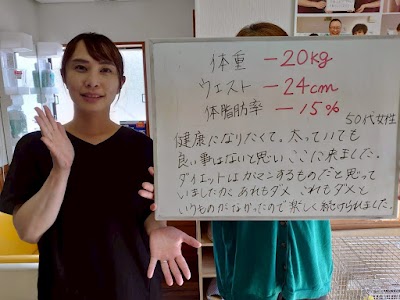 体重 －20kg
ウェスト －24cm
体脂肪率 －15%
50代女性
健康になりたくて。太っていても
良い事はないと思いここに来ました。
ダイエットはガマンするものだと思って
いましたが、あれもダメ これもダメと
いうものがなかったので楽しく続けられました。